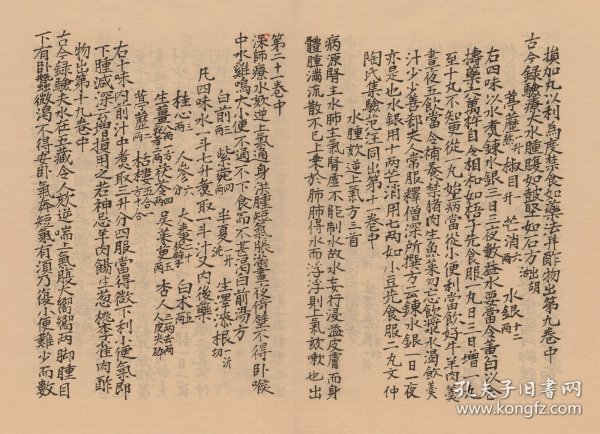 損加丸以利為度禁食如藥法并酢物出第九卷中
古今錄驗療大水腫腹如鼓堅如石方 胡
葶藶 升 椒目 升 芒消 六兩 水銀 十二兩
右四味以水煮鍊水銀三日三夜數益水要當令黃白以合
擣藥六萬杵自令相和如梧子先食服一丸日三日增一丸
至十丸不知更從一丸始病當從小便利當飲好牛羊肉羹
晝夜五飲當令補養禁猪肉生魚菜勿忘飲漿水渴飲羹
汁少少善郄夫人常服釋僧深所撰方云鍊水銀一日一夜
亦是也水銀用十兩芒消用七兩如小豆先食服一丸文仲
陶氏集驗范汪同出第十一卷中
水腫欬逆上氣方三首
病源腎主水肺主氣腎虛不能制水故水妄行浸溢皮膚而身
體腫滿流散不已上乘於肺肺得水而浮浮則上氣欬嗽也出
第二十一卷中
深師療水欬逆上氣通身洪腫短氣脹滿晝夜倚壁不得臥喉
中水雞鳴大小便不通不下食而不甚渴白前湯方
白前 三兩 紫菀 四兩 半夏 五合洗 生澤漆根 一升切
凡四味水一斗七升煮取一斗汁又內後藥
桂心 三兩 人參 六分 大棗 二十枚擘 白朮 五兩
生薑 八兩 茯苓 四兩 吳茱萸 五兩 杏人 二兩去兩人皮尖碎
葶藶 二兩 栝樓 五合
右十味內前汁中煮取三升分四服當得微下利小便氣即
下腫減深云增損用之若神忌羊肉餳生葱桃李雀肉酢
物出第十九卷中
古今錄驗夫水在五藏令人欬逆喘上氣腹大嚮嚮兩脚腫目
下有臥蠶微渴不得安臥氣奔短氣有須乃復小便難少而數
孔夫子旧书网
www.kongfz.com